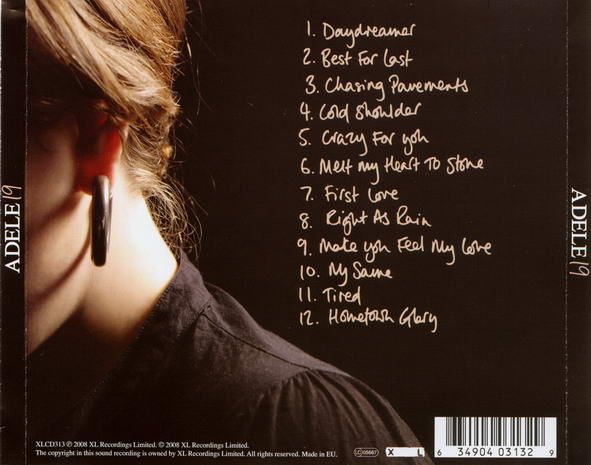 ADELE 19
1. Daydreamer
2. Best For Last
3. Chasing Pavements
4. Cold Shoulder
5. Crazy For you
6. Melt my Heart To Stone
7. First Love
8. Right As Rain
9. Make you Feel My Love
10. My Same
11. Tired
12. Hometown Glory
ADELE 19
XLCD313 ℗ 2008 XL Recordings Limited. © 2008 XL Recordings Limited.
The copyright in this sound recording is owned by XL Recordings Limited. All rights reserved. Made in EU.
LC 05667
X L
6 34904 03132 9